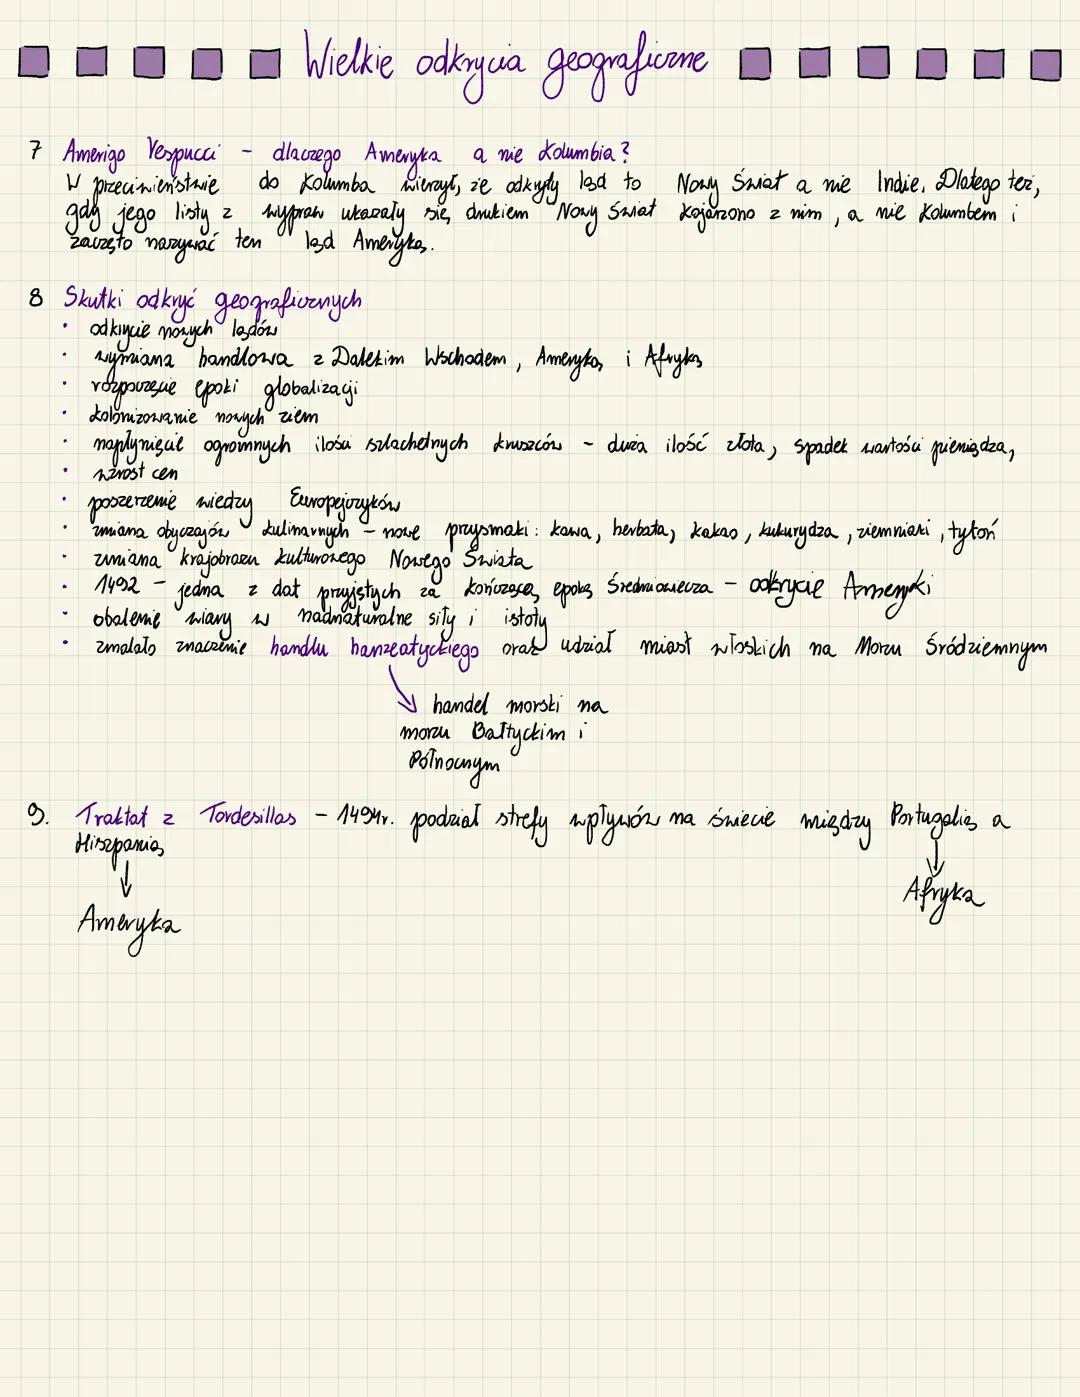 Wielkie odkrycia geograficzne
7 Amerigo Vespucci - dlaczego Ameryka a nie Kolumbia?
W przeciwieństwie do Kolumba wierzył, że odkryty ląd to Nowy Świat a nie Indie. Dlatego też,
gdy jego listy z wypraw ukazały się drukiem Nowy Świat kojarzono z nim, a nie Kolumbem i
zaczęto nazywać ten ląd Ameryką.
8 Skutki odkryć geograficznych
• odkrycie nowych lądów
• wymiana handlowa z Dalekim Wschodem, Ameryką i Afryką
• rozpoczęcie epoki globalizacji
• kolonizowanie nowych ziem
• napłynięcie ogromnych ilości szlachetnych kruszców - duża ilość złota, spadek wartości pieniądza,
• wzrost cen
• poszerzenie wiedzy Europejczyków
• zmiana obyczajów kulinarnych - nowe przysmaki: kawa, herbata, kakao, kukurydza, ziemniaki, tytoń
• zmiana krajobrazu kulturowego Nowego Świata
• 1492 - jedna z dat przyjętych za kończącą epokę Średniowiecza - odkrycie Ameryki
• obalenie wiary w nadnaturalne siły i istoty
• zmalało znaczenie handlu hanzeatyckiego oraz udział miast włoskich na Morzu Śródziemnym
handel morski na
morzu Bałtyckim i
Północnym
9. Traktat z Tordesillas - 1494r. podział strefy wpływów na świecie między Portugalią a
Hiszpanią
Afryka
Ameryka